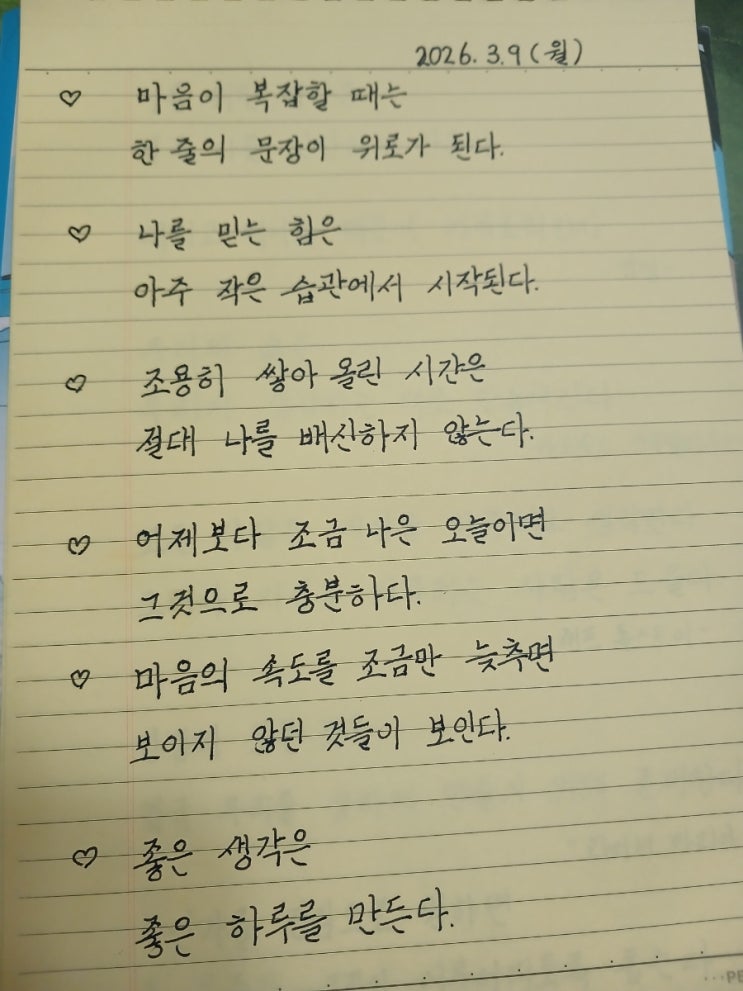 2026. 3. 9 (월)
♡ 마음이 복잡할 때는
한 줄의 문장이 위로가 된다.
♡ 나를 믿는 힘은
아주 작은 습관에서 시작된다.
♡ 조용히 쌓아 올린 시간은
절대 나를 배신하지 않는다.
♡ 어제보다 조금 나은 오늘이면
그것으로 충분하다.
♡ 마음의 속도를 조금만 늦추면
보이지 않던 것들이 보인다.
♡ 좋은 생각은
좋은 하루를 만든다.